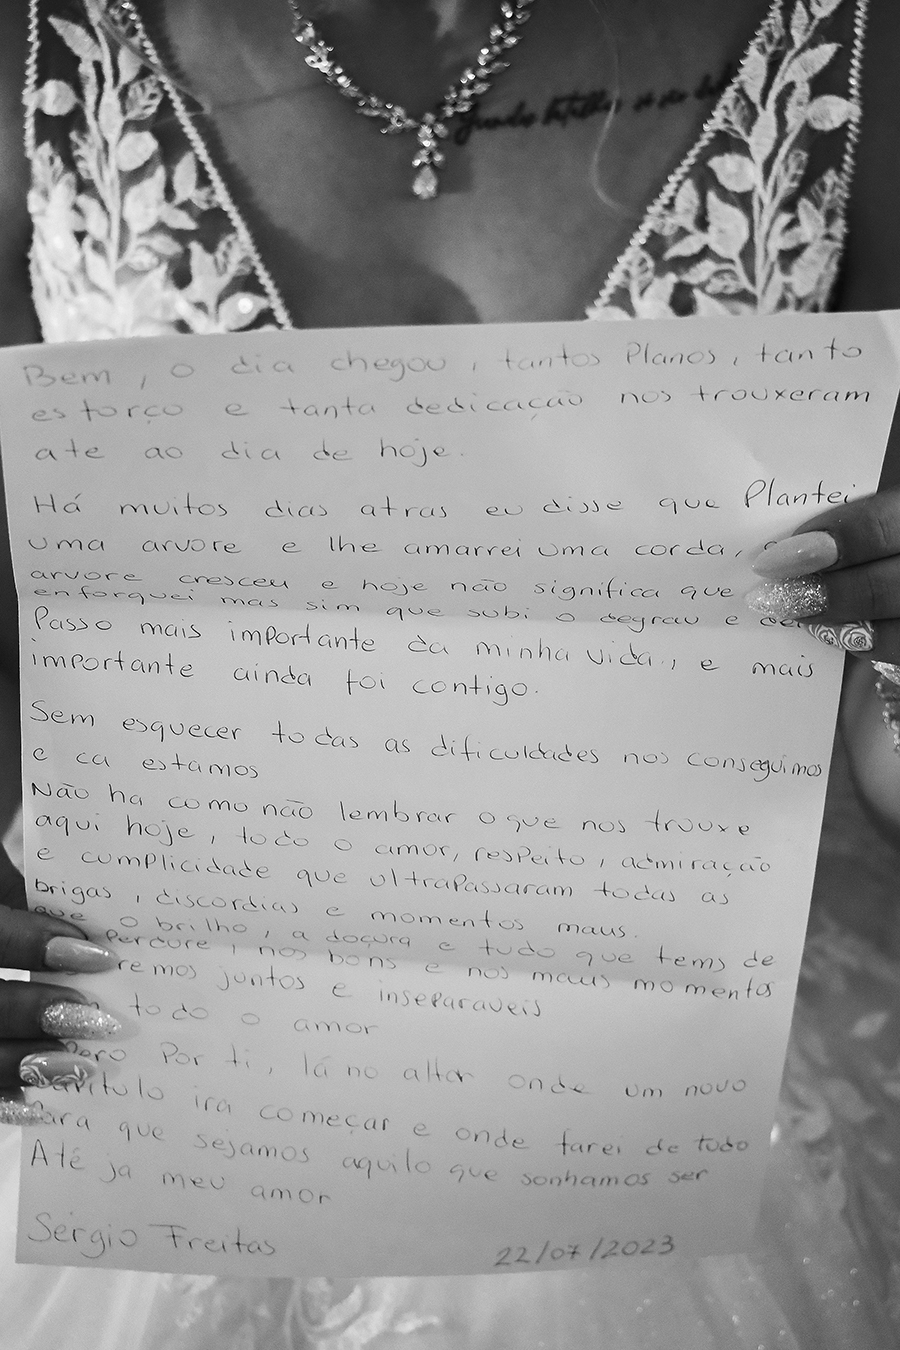 Bem, o dia chegou, tantos Planos, tanto
esforço e tanta dedicação nos trouxeram
ate ao dia de hoje.
Há muitos dias atras eu disse que Plantei
uma arvore e lhe amarrei uma corda,
arvore cresceu e hoje não significa que
enforquei mas sim que subi o degrau e
Passo mais importante da minha vida., e mais
importante ainda foi contigo.
Sem esquecer todas as dificuldades nos conseguimos
e ca estamos
Não ha como não lembrar o que nos trouxe
aqui hoje, todo o amor, respeito, admiração
e cumplicidade que ultrapassaram todas as
brigas, discordias e momentos maus.
que o brilho, a doçura e tudo que tems de
Perdure, nos bons e nos maus momentos
remos juntos e inseparaveis
todo o amor
Por ti, lá no altar onde um novo
ira começar e onde farei de tudo
Para que sejamos aquilo que sonhamos ser
Até ja meu amor
Sérgio Freitas 22/07/2023